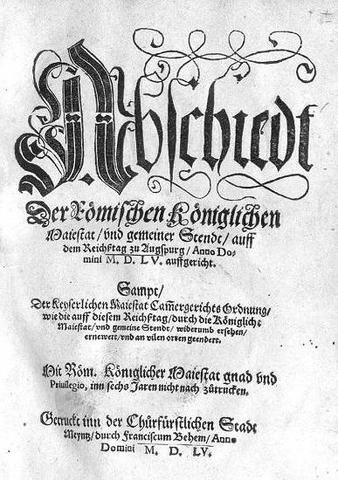 Abschiedt
Der Römischen Königlichen
Maiestat/ vnd gemeiner Stendt/ auff
dem Reichßtag zu Augspurg/ Anno Do-
mini M. D. LV. auffgericht.
Sampt/
Der Keyserlichen Maiestat Cam̃ergerichts Ordnung/
wie die auff diesem Reichßtag/ durch die Königliche
Maiestat/ vnd gemeine Stendt/ widerumb ersehen/
ernewert/ vnd an vilen orten geendert.
Mit Röm. Königlicher Maiestat gnad vnd
Priuilegio, inn sechs Jaren nicht nach zůtrucken.
Getruckt inn der Churfürstlichen Stadt
Meyntz/ durch Franciscum Behem/ Anno
Domini M. D. LV.